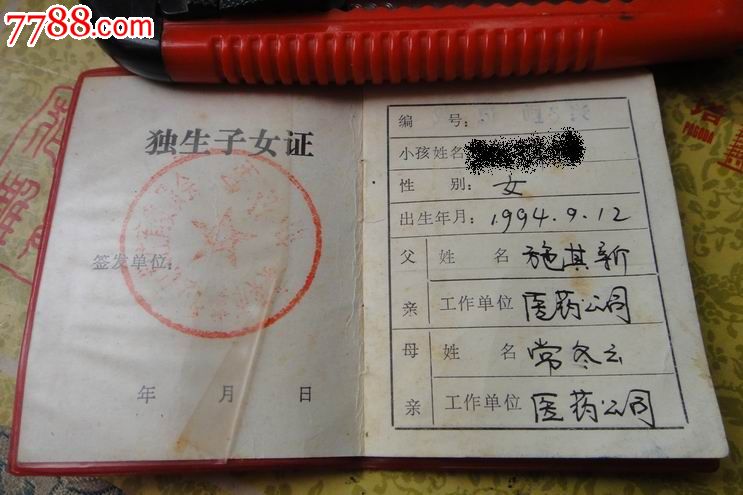 7788.com
独生子女证
签发单位:
年 月 日
编 号:
小孩姓名
性 别: 女
出生年月: 1994.9.12
父亲 姓 名 施其新
工作单位 医药公司
母亲 姓 名 常冬云
工作单位 医药公司
塔
PAGODA